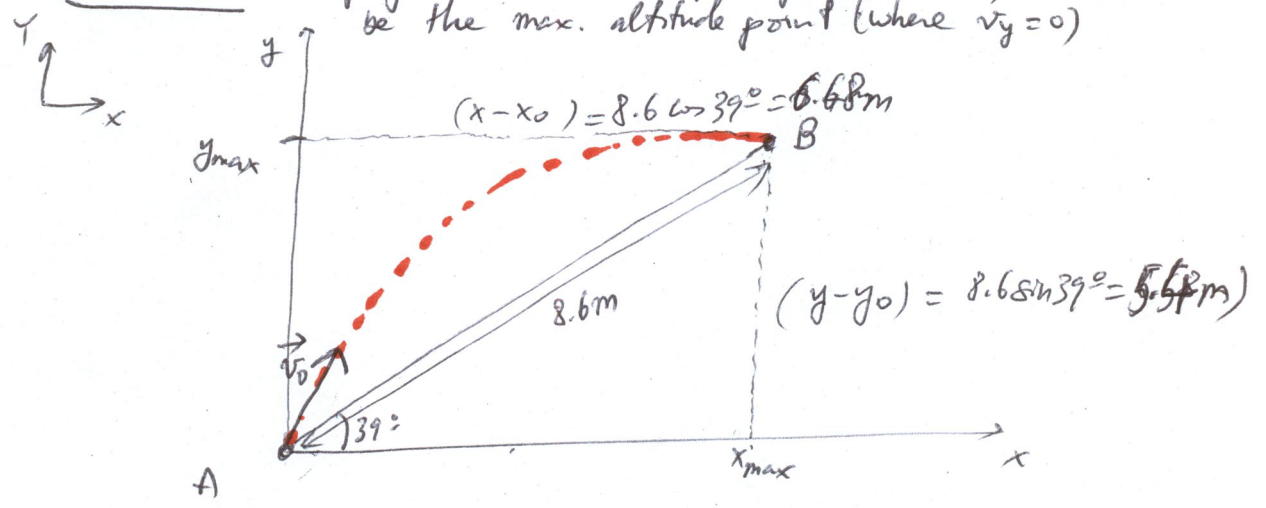 be the max. altitude point (where vy = 0)
Y
x
y
(x-x₀) = 8.6 cos 39° = 6.68m
B
ymax
8.6m
(y-y₀) = 8.6 sin 39° =
v⃗₀
39°
xmax
x
A